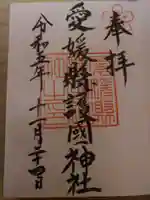 奉拝
愛媛縣護國神社
令和五年十一月二十四日